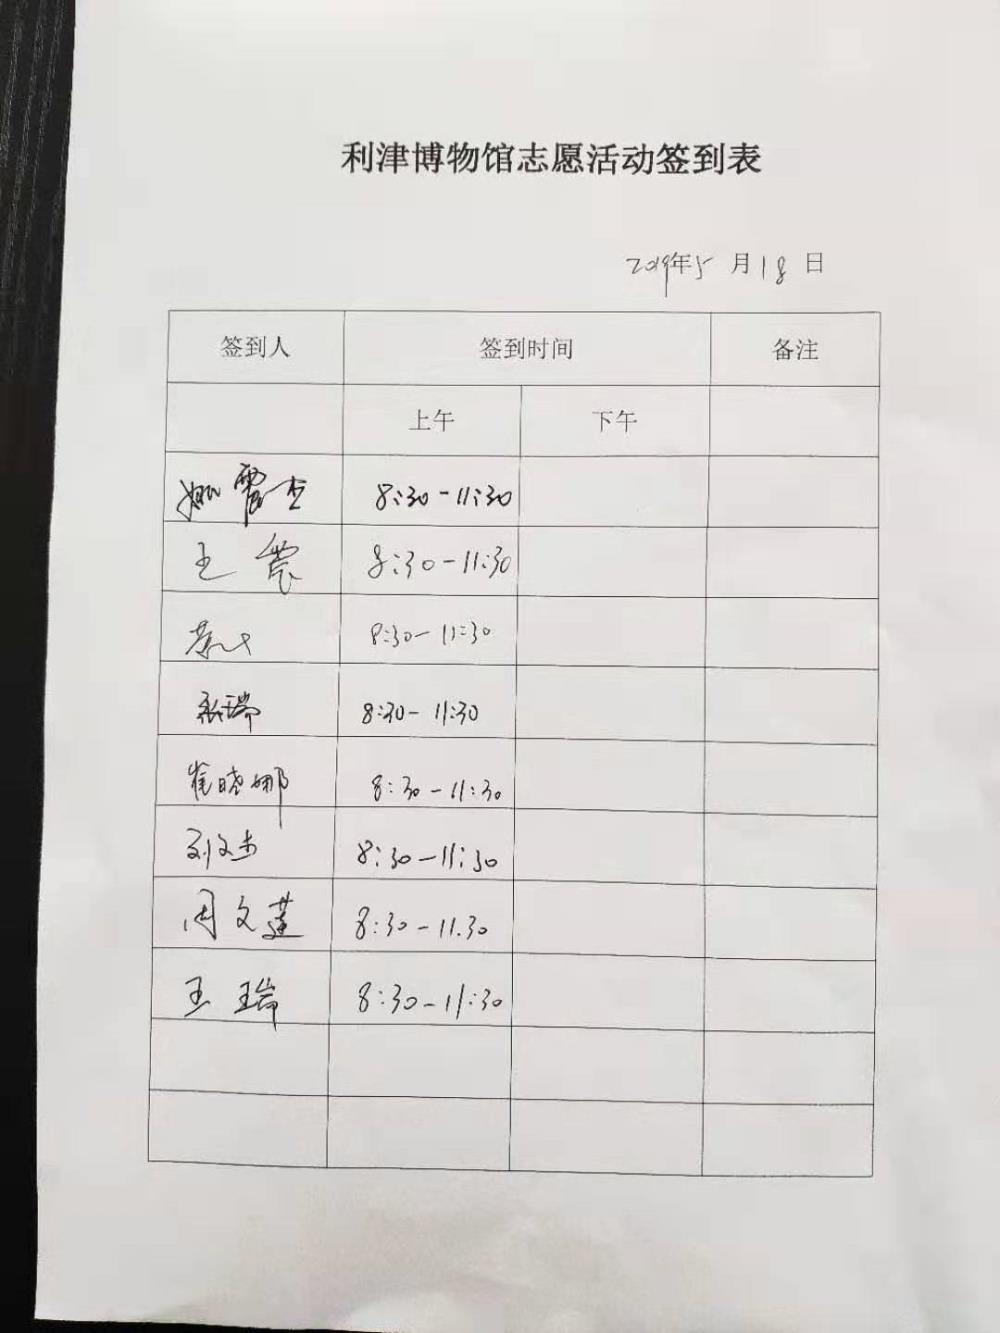 利津博物馆志愿活动签到表
2019年5月18日
签到人 签到时间 备注
上午 下午
8:30-11:30
王震 8:30-11:30
8:30-11:30
张瑞 8:30-11:30
崔晓娜 8:30-11:30
刘文杰 8:30-11:30
周文莲 8:30-11.30
王瑞 8:30-11:30